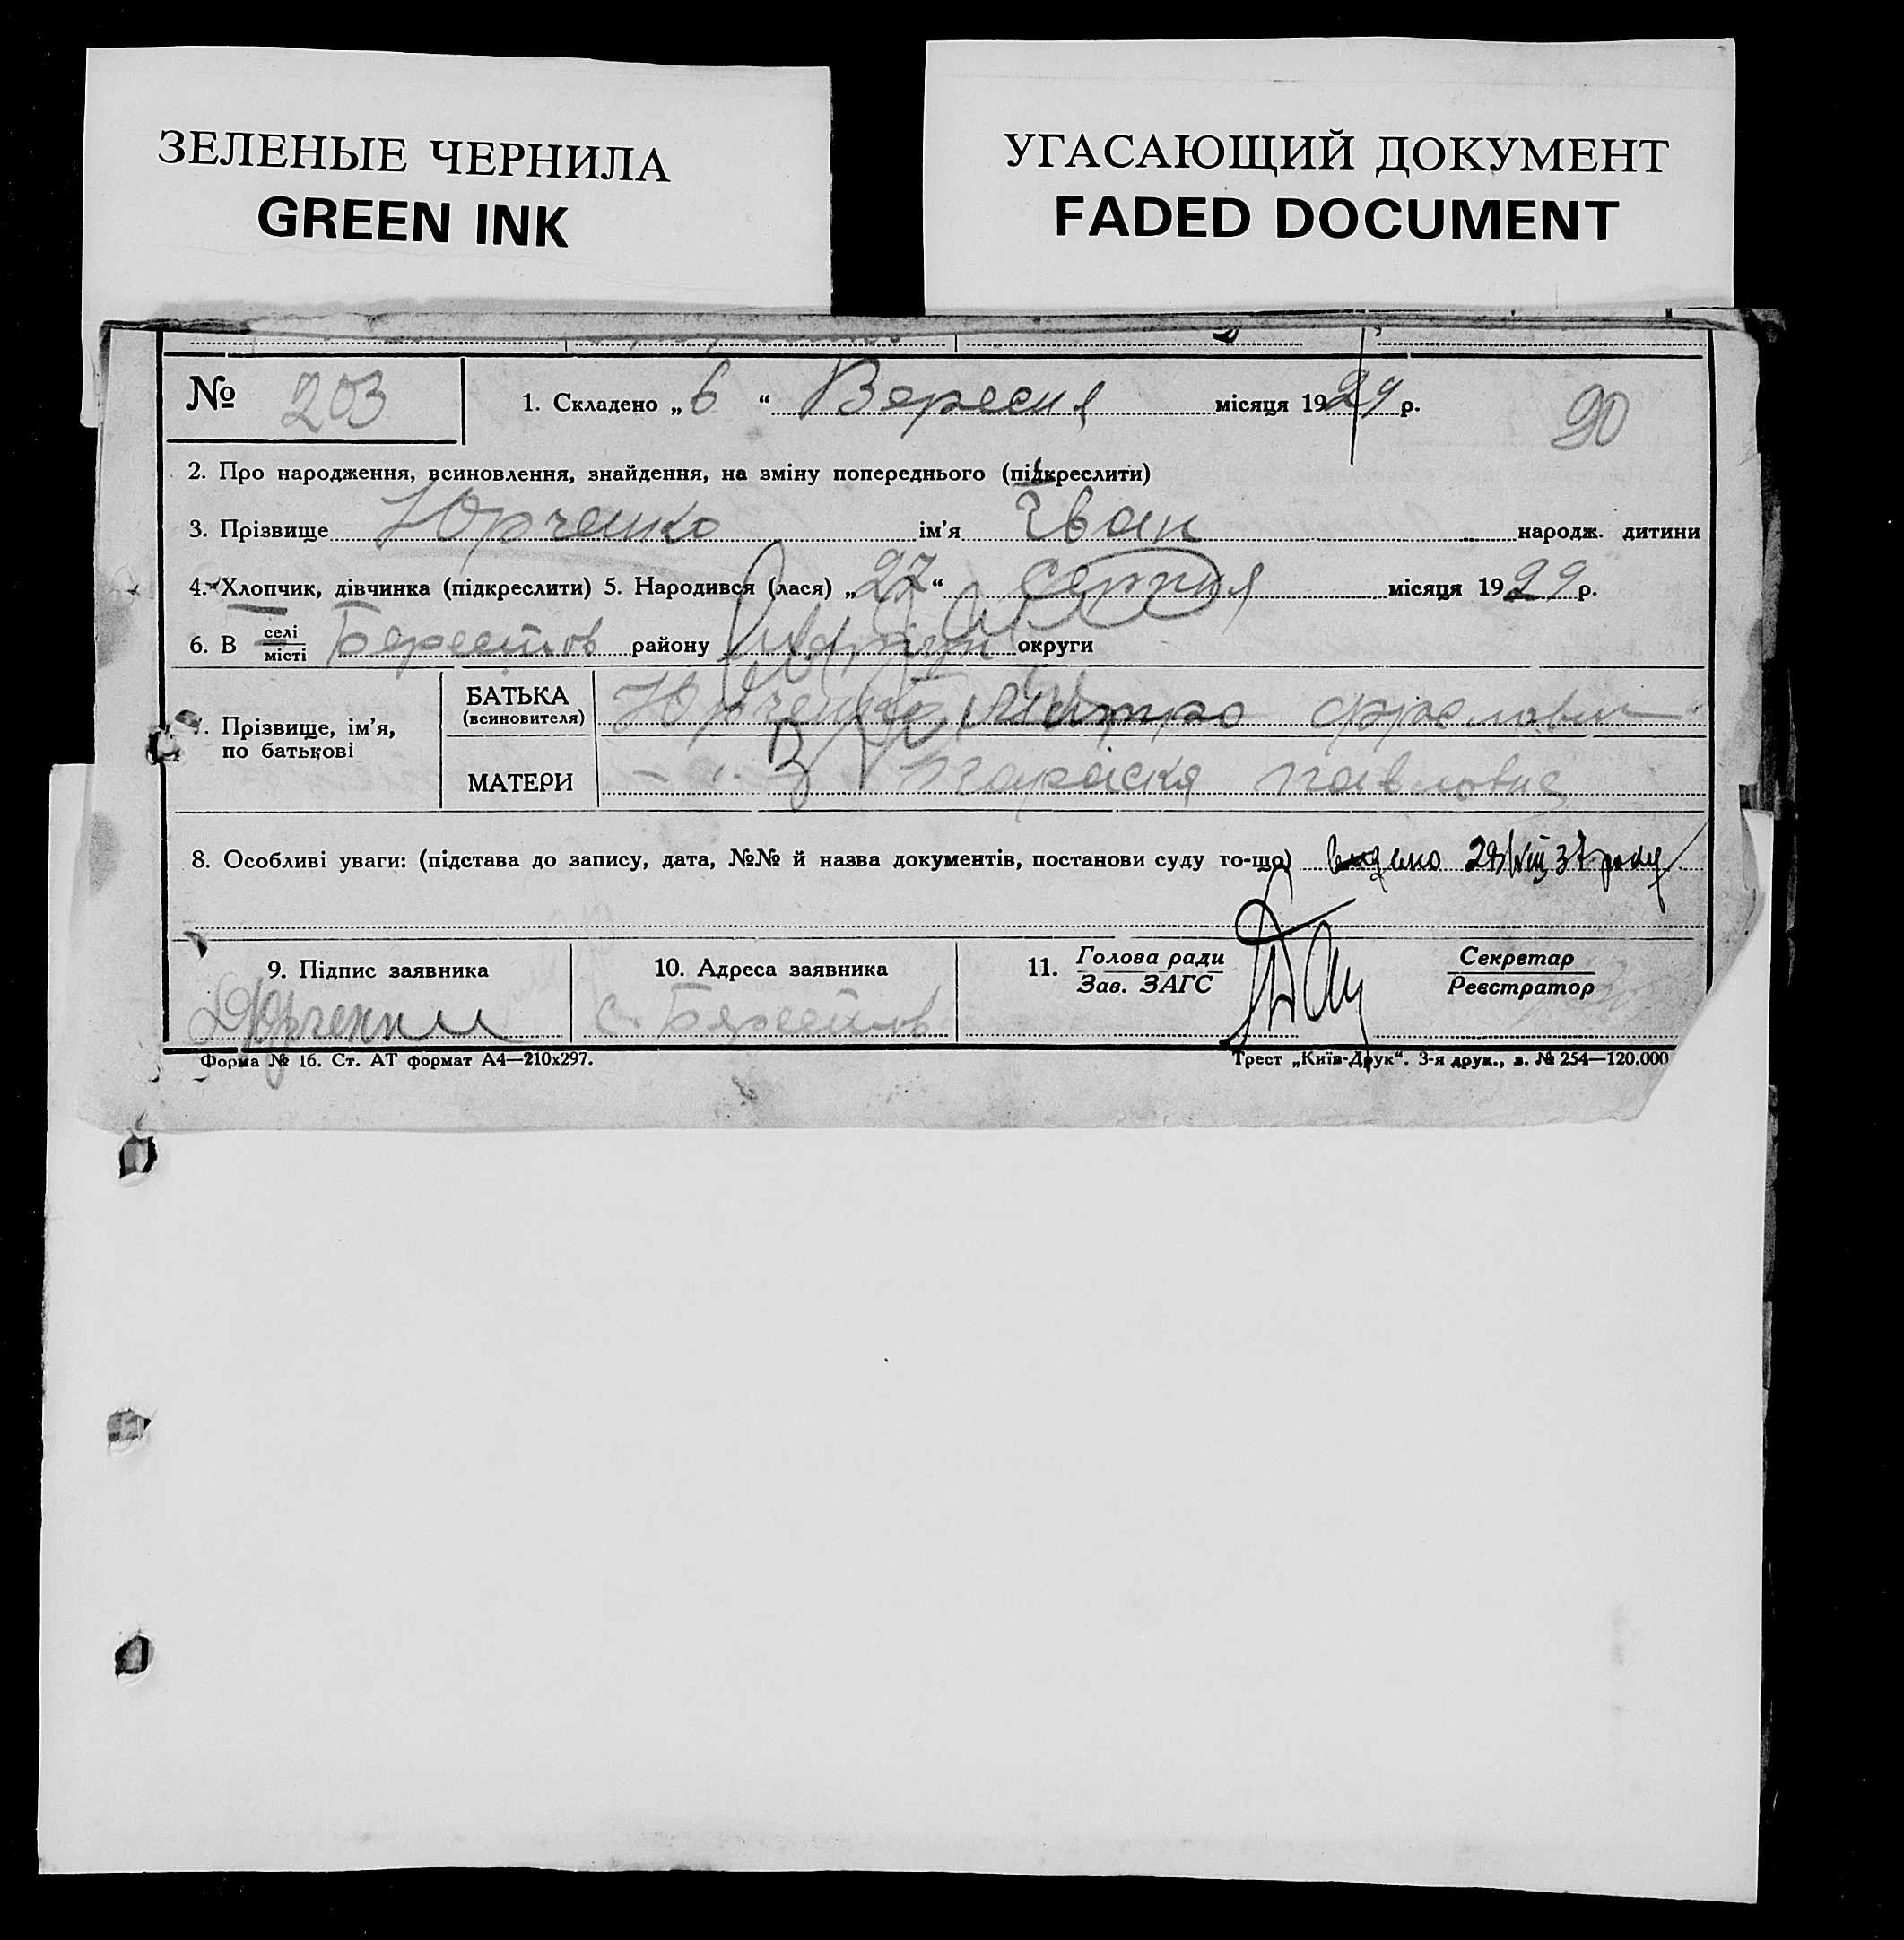 ЗЕЛЕНЫЕ ЧЕРНИЛА
GREEN INK
УГАСАЮЩИЙ ДОКУМЕНТ
FADED DOCUMENT
№ 203
1. Складено „ 6 “ Вересня місяця 1929 р.
90
2. Про народження, всиновлення, знайдення, на зміну попереднього (підкреслити)
3. Прізвище Юрченко ім’я Іван народж. дитини
4. Хлопчик, дівчинка (підкреслити) 5. Народився (лася) „27“ серпня місяця 1929 р.
6. В селі місті Берестов району округи
7. Прізвище, ім’я, по батькові
БАТЬКА (всиновителя) Юрченко
МАТЕРИ Параска Павловна
8. Особливі уваги: (підстава до запису, дата, №№ й назва документів, постанови суду то-що) видано 28/VIII 37 року
9. Підпис заявника
10. Адреса заявника
11. Голова ради
Зав. ЗАГС
Секретар
Реєстратор
с. Берестов
Форма № 16. Ст. АТ формат А4—210x297.
Трест „Київ-Друк“. 3-я друк., з. № 254—120.000